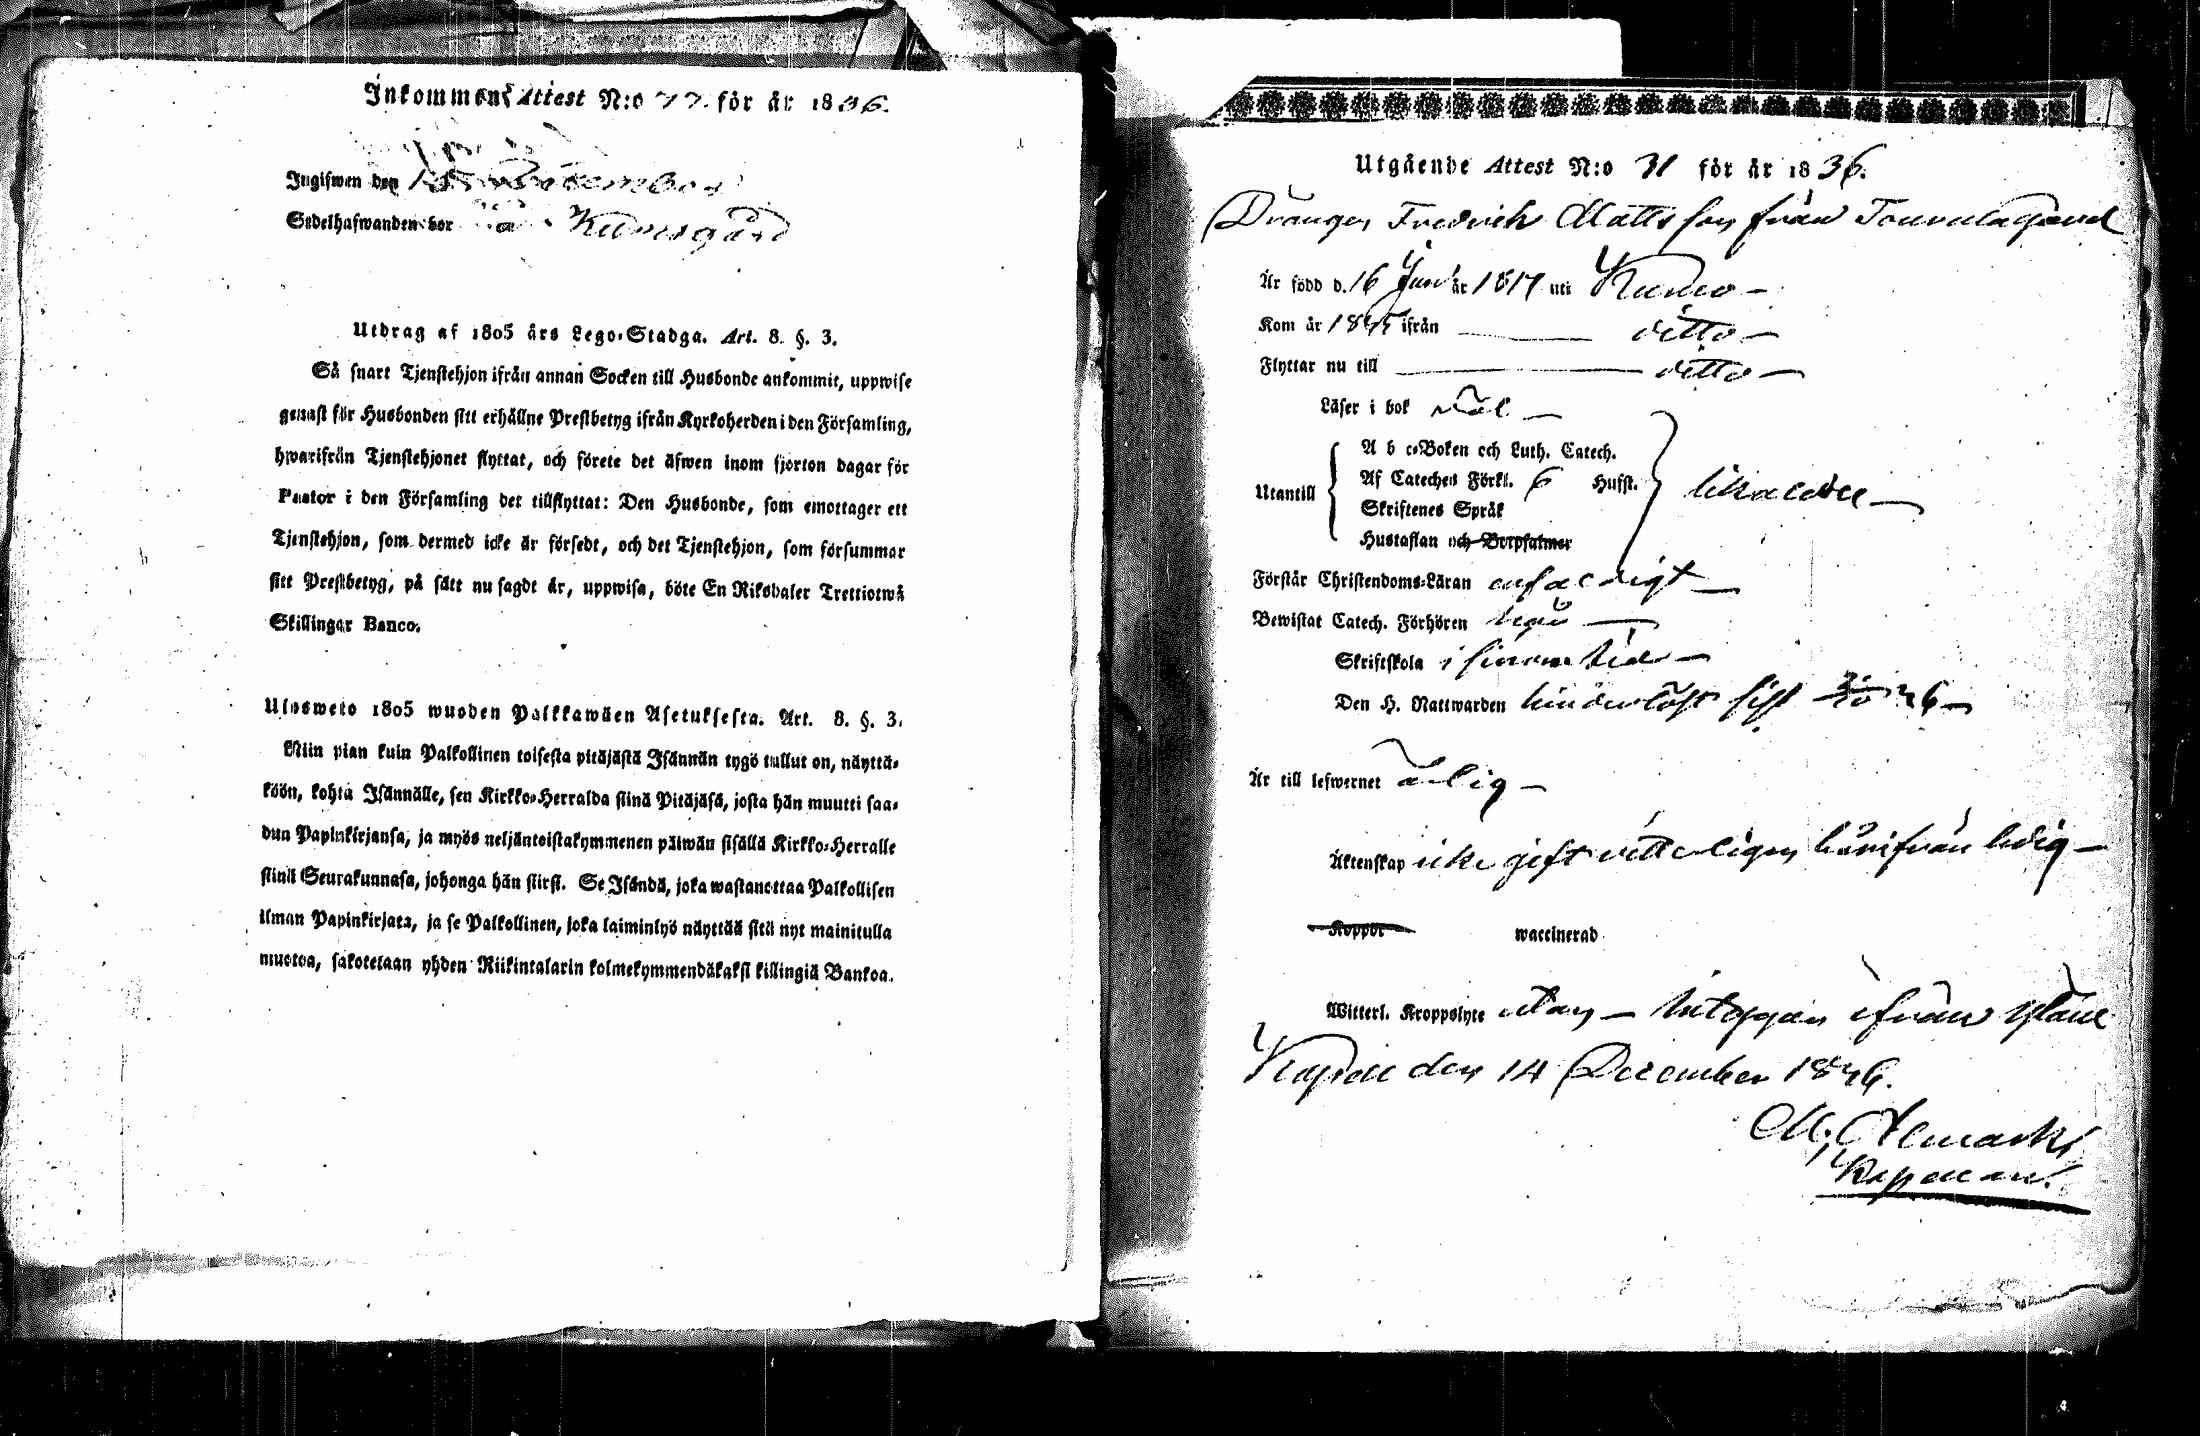 Inkommen Attest N:o 77. för år 1836.
Ingifwen den
Sedelhafwanden bor Kumogård
Utdrag af 1805 års Lego-Stadga. Art. 8. §. 3.
Så snart Tjenstehjon ifrån annan Socken till Husbonde ankommit, uppwise
genast för Husbonden sitt erhållne Prestbetyg ifrån Kyrkoherden i den Församling,
hwarifrån Tjenstehjonet flyttat, och förete det äfwen inom fjorton dagar för
Pastor i den Församling det tillflyttat: Den Husbonde, som emottager ett
Tjenstehjon, som dermed icke är försedt, och det Tjenstehjon, som försummar
sitt Prestbetyg, på sätt nu sagdt är, uppwisa, böte En Riksdaler Trettiotwå
Skillingar Banco.
Ulosweto 1805 wuoden Palkkawäen Asetuksesta. Art. 8. §. 3.
Niin pian kuin Palkollinen toisesta pitäjästä Isännän tygö tullut on, näyttä-
köön, kohta Isännälle, sen Kirkko-Herralda siinä Pitäjäsä, josta hän muutti saa-
dun Papinkirjansa, ja myös neljäntoistakymmenen päiwän sisällä Kirkko-Herralle
siinä Seurakunnasa, johonga hän siirsi. Se Isändä, joka wastanottaa Palkollisen
ilman Papinkirjata, ja se Palkollinen, joka laiminlyö näyttää sitä nyt mainitulla
muotoa, sakotetaan yhden Riikintalarin kolmekymmendäkaksi killingiä Bankoa.
Utgående Attest N:o 31 för år 1836.
Drängen Fredrich Mattsson från
Är född d. 16 Juni år 1817 uti Kumo
Kom år ifrån ditto
Flyttar nu till ditto
Läser i bok väl
A b c-Boken och Luth. Catech.
Af Cateches Förkl. 6 Hufst.
Utantill
Skriftenes Språk
likaledes
Hustaflan och Botpsalmer
Förstår Christendoms-Läran enfaldigt
Bewistat Catech. Förhören
Skriftskola i sinom tid
Den H. Nattwarden hinderlöst sist
Är till lefwernet ärlig
Äktenskap icke gift vitterligen härifrån ledig
Koppor waccinerad
Witterl. Kroppslyte utan ifrån
den 14 December 1836.